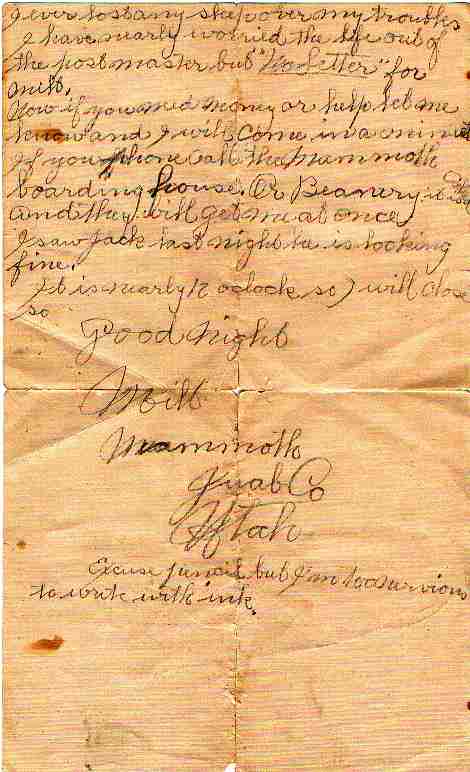 I ever lost any sleep over my troubles
I have nearly worried the life out of
the post master but "No Letter" for
Milt.
Now if you need money or help let me
know and I will come in a minute
If you phone call the Mammoth
boarding house. Or Beanery it is
and they will get me at once
I saw Jack last night he is looking
fine.
It is nearly 12 oclock so I will close
so
Good Night
Milt
Mammoth
Juab Co
Utah
Excuse pencil but I'm too nurvious
to write with ink.